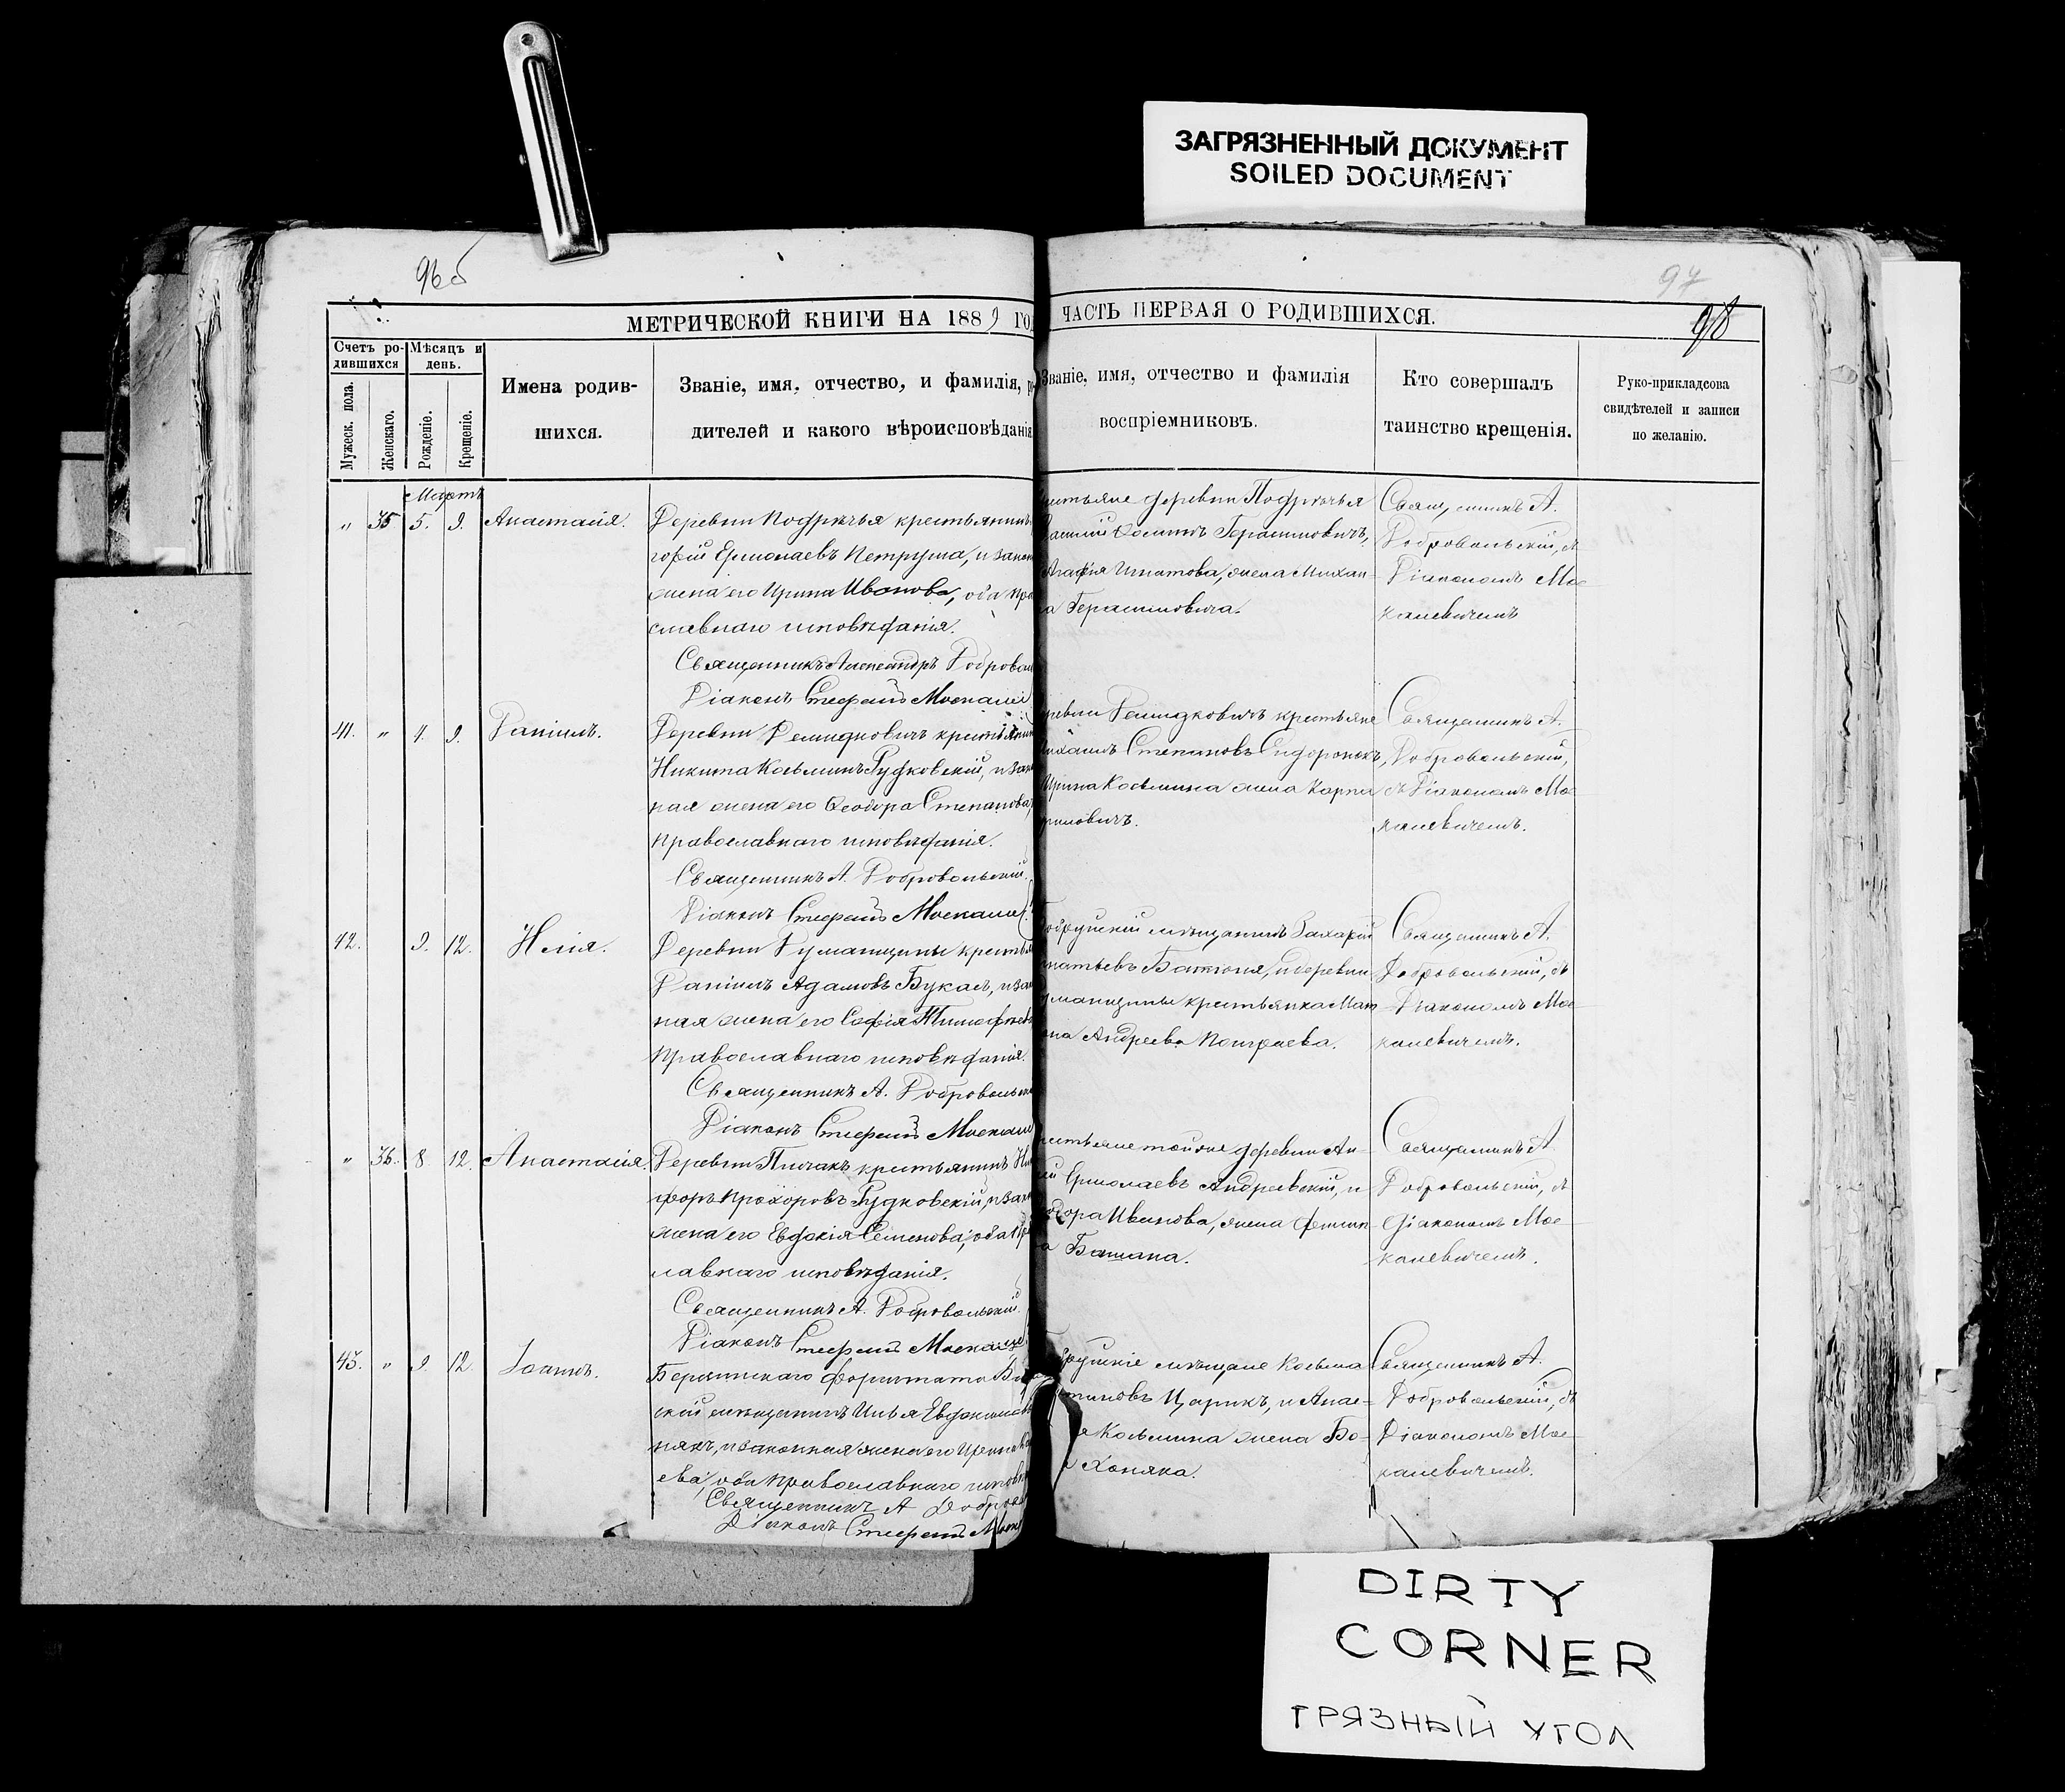 ЗАГРЯЗНЕННЫЙ ДОКУМЕНТ
SOILED DOCUMENT
96б
97
98
МЕТРИЧЕСКОЙ КНИГИ НА 1889 ГО
ЧАСТЬ ПЕРВАЯ О РОДИВШИХСЯ.
Счетъ ро-
дившихся
Мѣсяцъ и
день.
Мужеск. пола.
Женскаго.
Рожденіе.
Крещеніе.
Имена родив-
шихся.
Званіе, имя, отчество, и фамилія, ро
дителей и какого вѣроисповѣданія
Званіе, имя, отчество и фамилія
воспріемниковъ.
Кто совершалъ
таинство крещенія.
Руко-прикладсова
свидѣтелей и записи
по желанію.
Мартъ
" 35 5. 9. Анастасія.
Деревни Подрѣчья крестьянинъ
горій Ермолаевъ Петруша, и закон
жена его Ирина Иванова, оба пра
славнаго исповѣданія.
Священникъ Александръ Добровол
Діаконъ Стефанъ Москалев
естьяне деревни Подрѣчья
Герасимовичъ,
Агафія Игнатова, жена Миха
а Герасимовича.
Священникъ А.
Добровольскій, съ
Діакономъ Мос
калевичемъ
41. " 4. 9. Даніилъ.
Деревни Демидковичъ крестьянин
Никита Козьминъ Рудковскій, и зак
ная жена его Ѳеодора Степанова,
православнаго исповѣданія.
Священникъ А. Добровольскій.
Діаконъ Стефанъ Москалев
ревни Демидковичъ крестьяне
ихаилъ Степановъ Сидоронокъ,
Ирина Козьмина жена Карпа
Священникъ А.
Добровольскій,
съ Діакономъ Мос
калевичемъ.
42. 9. 12. Илія.
Деревни Гуманщины крестья
Даніилъ Адамовъ Букасъ, и зак
ная жена его Софія Тимофѣева
православнаго исповѣданія.
Священникъ А. Добровольск
Діаконъ Стефанъ Москале
обруйскій мѣщанинъ Захарій
натьевъ и деревни
уманщины крестьянка Мат
она Андреева
Священникъ А.
Добровольскій, съ
Діакономъ Мос
калевичемъ.
" 36. 8 12. Анастасія.
Деревни Пычакъ крестьянинъ Ни
форъ Прохоровъ Рудковскій, и зак
жена его Евдокія Семенова, оба пр
лавнаго исповѣданія.
Священникъ А. Добровольскій.
Діаконъ Стефанъ Москале
естьяне той же деревни Ан-
ей Ермолаевъ Андреевскій, и
одора Иванова, жена
а Башана.
Священникъ А.
Добровольскій, съ
Діакономъ Мос
калевичемъ.
43. " 9 12. Іоаннъ.
Березинскаго форштата Бо
скій мѣщанинъ Илья Евдокимовъ
някъ, и законная жена его Ирина
ева, оба православнаго исповѣ
Священникъ А Добров
Діаконъ Стефанъ Моск
бруйскіе мѣщане Козьма
тиновъ Царикъ, и Анас-
я Козьмина жена Бо-
а Хоняка.
Священникъ А.
Добровольскій, съ
Діакономъ Мос
калевичемъ.
DIRTY
CORNER
ГРЯЗНЫЙ УГОЛ